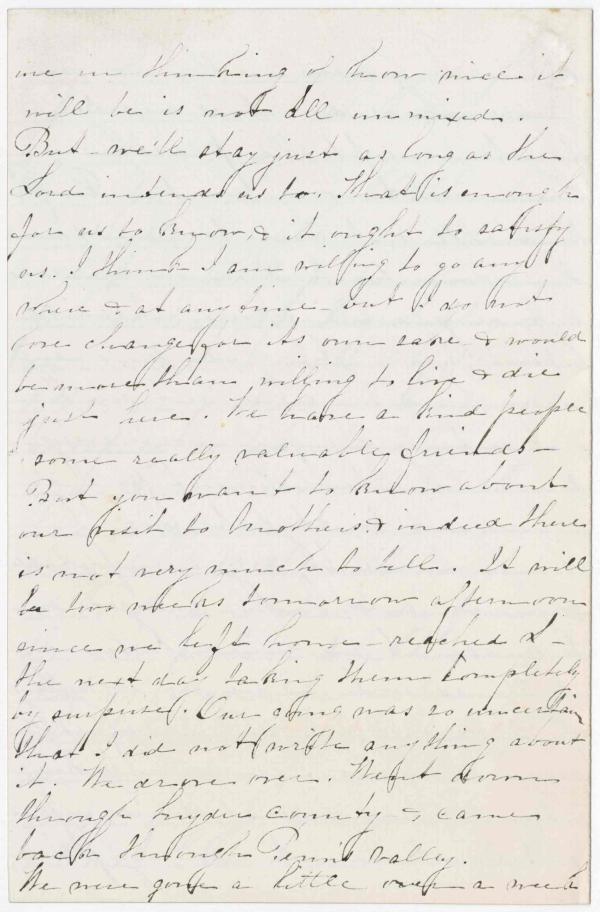 me in thinking of how nice it
will be is not all unmixed.
But we'll stay just as long as the
Lord intends us to. That is enough
for us to know, & it ought to satisfy
us. I think I am willing to go any
where & at any time - but I do not
love change for its own sake & would
be more than willing to live & die
just here. We have a kind people
some really valuable friends -
But you want to know about
our visit to brothers & indeed there
is not very much to tell. It will
be two weeks tomorrow afternoon
since we left home - reached L -
the next day taking them completely
by surprise. Our going was so uncertain
that I did not write anything about
it. We drove over. Went down
through Snyder county & came
back through Penn's valley.
We were gone a little over a week